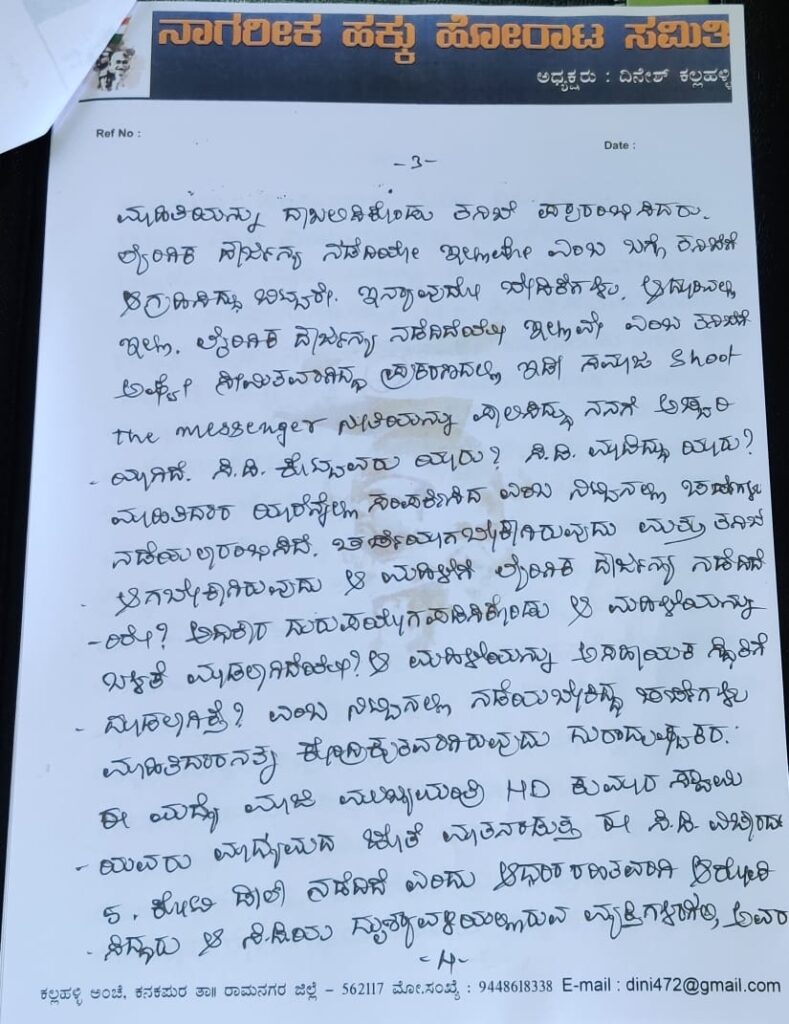 ನಾಗರೀಕ ಹಕ್ಕು ಹೋರಾಟ ಸಮಿತಿ
ಅಧ್ಯಕ್ಷರು : ದಿನೇಶ್ ಕಲ್ಲಹಳ್ಳಿ
Ref No :
Date :
-3-
ಮಾಹಿತಿಯನ್ನು ದಾಖಲಿಸಿಕೊಂಡು ತನಿಖೆ ಪ್ರಾರಂಭಿಸಿದರು.
ಲೈಂಗಿಕ ದೌರ್ಜನ್ಯ ನಡೆದಿದೆಯೇ ಇಲ್ಲಾವೇ ಎಂಬ ಬಗ್ಗೆ ತನಿಖೆಗೆ
ಆಗ್ರಹಿಸಿದ್ದು ಬಿಟ್ಟರೇ. ಇನ್ಯಾವುದೇ ಬೇಡಿಕೆಗಳು, ಅದ್ದರಲ್ಲಿ
ಇಲ್ಲಾ. ಲೈಂಗಿಕ ದೌರ್ಜನ್ಯ ನಡೆದಿದೆಯೇ ಇಲ್ಲಾವೇ ಎಂಬ ತನಿಖೆಗೆ
ಅಷ್ಟೇ ಸೀಮಿತವಾಗಿದ್ದ ಪ್ರಕರಣದಲ್ಲಿ ಇಡೀ ಸಮಾಜ Shoot
the messenger ನೀತಿಯನ್ನು ಪಾಲಿಸಿದ್ದು ನನಗೆ ಅಚ್ಚರಿ
- ಯಾಗಿದೆ. ಸಿ.ಡಿ. ಕೊಟ್ಟವರು ಯಾರು? ಸಿ.ಡಿ. ಮಾಡಿದ್ದು ಯಾರು?
ಮಾಹಿತಿದಾರ ಯಾರನ್ನೆಲ್ಲಾ ಸಂಪರ್ಕಿಸಿದ ಎಂಬ ನಿಟ್ಟಿನಲ್ಲಿ ಚರ್ಚೆಗಳು
ನಡೆಯಲಾರಂಭಿಸಿದೆ. ಚರ್ಚೆಯಾಗಬೇಕಾಗಿರುವುದು ಮತ್ತು ತನಿಖೆ
- ಆಗಬೇಕಾಗಿರುವುದು ಆ ಮಹಿಳೆಗೆ ಲೈಂಗಿಕ ದೌರ್ಜನ್ಯ ನಡೆದಿದೆ
- ಯೇ? ಅಧಿಕಾರ ದುರುಪಯೋಗಪಡಿಸಿಕೊಂಡು ಆ ಮಹಿಳೆಯನ್ನು
ಬಳಕೆ ಮಾಡಲಾಗಿದೆಯೇ? ಆ ಮಹಿಳೆಯನ್ನು ಅಸಹಾಯಕ ಸ್ಥಿತಿಗೆ
- ದೂಡಲಾಗಿತ್ತೆ? ಎಂಬ ನಿಟ್ಟಿನಲ್ಲಿ ನಡೆಯಬೇಕಿದ್ದ ಚರ್ಚೆಗಳು
ಮಾಹಿತಿದಾರನತ್ತ ಕೇಂದ್ರಿಕೃತವಾಗಿರುವುದು ದುರಾದೃಷ್ಟಕರ.
ಈ ಮಧ್ಯೆ ಮಾಜಿ ಮುಖ್ಯಮಂತ್ರಿ HD ಕುಮಾರ ಸ್ವಾಮಿ
- ಯವರು ಮಾಧ್ಯಮದ ಜೊತೆ ಮಾತನಾಡುತ್ತ ಈ ಸಿ.ಡಿ. ವಿಚಾರದಾ
5. ಕೋಟಿ ಡೀಲ್ ನಡೆದಿದೆ ಎಂದು ಆಧಾರ ರಹಿತವಾಗಿ ಆರೋಪಿ
- ಸಿದ್ದಾರು ಆ ಸಿ.ಡಿಯ ದೃಶ್ಯಾವಳಿಯಲ್ಲಿರುವ ವ್ಯಕ್ತಿಗಳಾಗಲಿ, ಅವರ
-4-
ಕಲ್ಲಹಳ್ಳಿ ಅಂಚೆ, ಕನಕಪುರ ತಾ|| ರಾಮನಗರ ಜಿಲ್ಲೆ – 562117 ಮೋ.ಸಂಖ್ಯೆ : 9448618338 E-mail : dini472@gmail.com